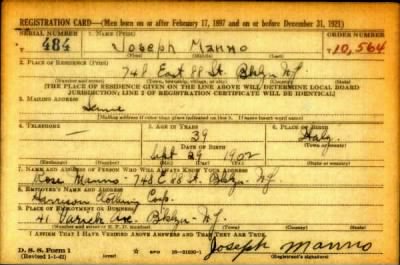 REGISTRATION CARD—(Men born on or after February 17, 1897 and on or before December 31, 1921)
SERIAL NUMBER 1. NAME (Print) ORDER NUMBER
U 484 Joseph Manno 10,564
(First) (Middle) (Last)
2. PLACE OF RESIDENCE (Print)
748 East 88 St. Bklyn NY
(Number and street) (Town, township, village, or city) (County) (State)
[THE PLACE OF RESIDENCE GIVEN ON THE LINE ABOVE WILL DETERMINE LOCAL BOARD
JURISDICTION; LINE 2 OF REGISTRATION CERTIFICATE WILL BE IDENTICAL]
3. MAILING ADDRESS
Same
[Mailing address if other than place indicated on line 2. If same insert word same]
4. TELEPHONE 5. AGE IN YEARS 6. PLACE OF BIRTH
— 39 Italy
DATE OF BIRTH (Town or county)
Sept 29 1902
(Exchange) (Number) (Mo.) (Day) (Yr.) (State or country)
7. NAME AND ADDRESS OF PERSON WHO WILL ALWAYS KNOW YOUR ADDRESS
Rose Manno - 748 E 88 St. Bklyn - NY
8. EMPLOYER'S NAME AND ADDRESS
Harrison Clothing Corp.
9. PLACE OF EMPLOYMENT OR BUSINESS
41 Varick Ave. Bklyn - NY
(Number and street or R. F. D. number) (Town) (County) (State)
I AFFIRM THAT I HAVE VERIFIED ABOVE ANSWERS AND THAT THEY ARE TRUE.
D. S. S. Form 1
(Revised 1-1-42) (over) Joseph Manno
(Registrant's signature)